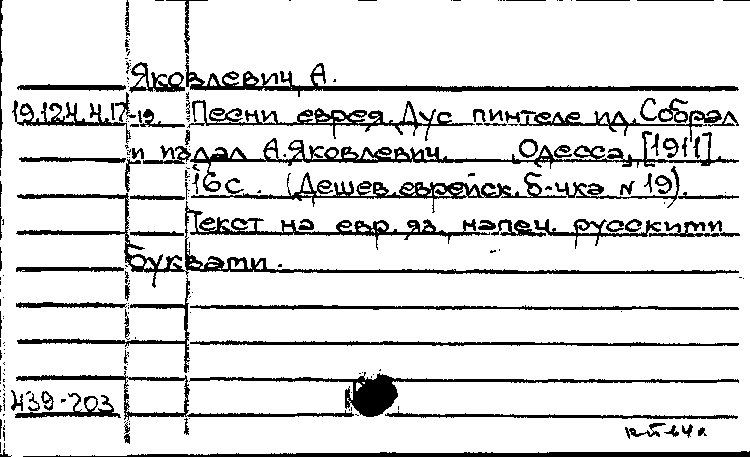 Яковлевич, А.
19.124.4.17-19. Песни еврея. Дус пинтеле ид. Собрал
и издал А. Яковлевич. Одесса, [1911].
16 с. (Дешев. еврейск. б-чка N 19).
Текст на евр. яз. напеч. русскими
буквами.
439-703